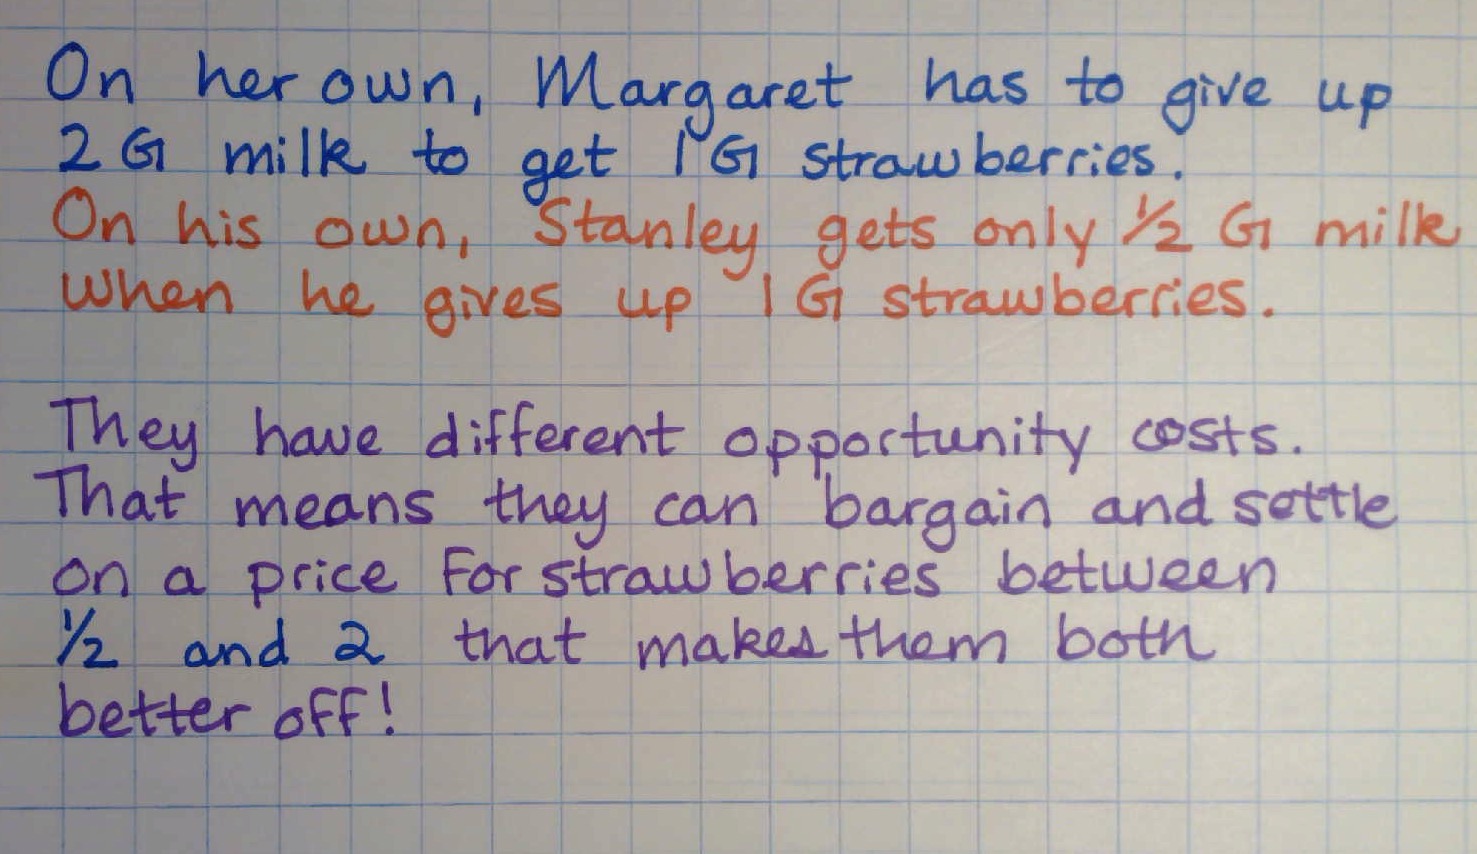 On her own, Margaret has to give up
2 G milk to get 1 G strawberries.
On his own, Stanley gets only ½ G milk
when he gives up 1 G strawberries.
They have different opportunity costs.
That means they can bargain and settle
on a price for strawberries between
½ and 2 that makes them both
better off!